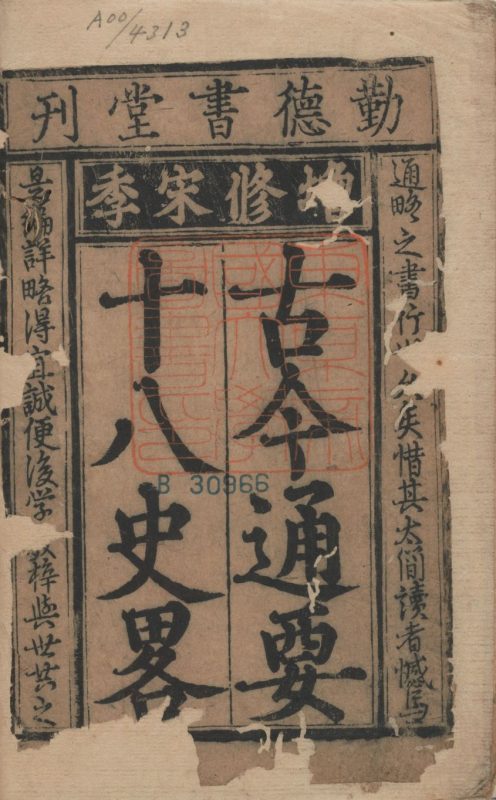 A00/4313
勤德書堂刊
增修宋季
古今通要
十八史畧
通略之書行世久矣惜其太簡讀者憾焉
是編詳略得宜誠便後学梓與世共之
B 30966